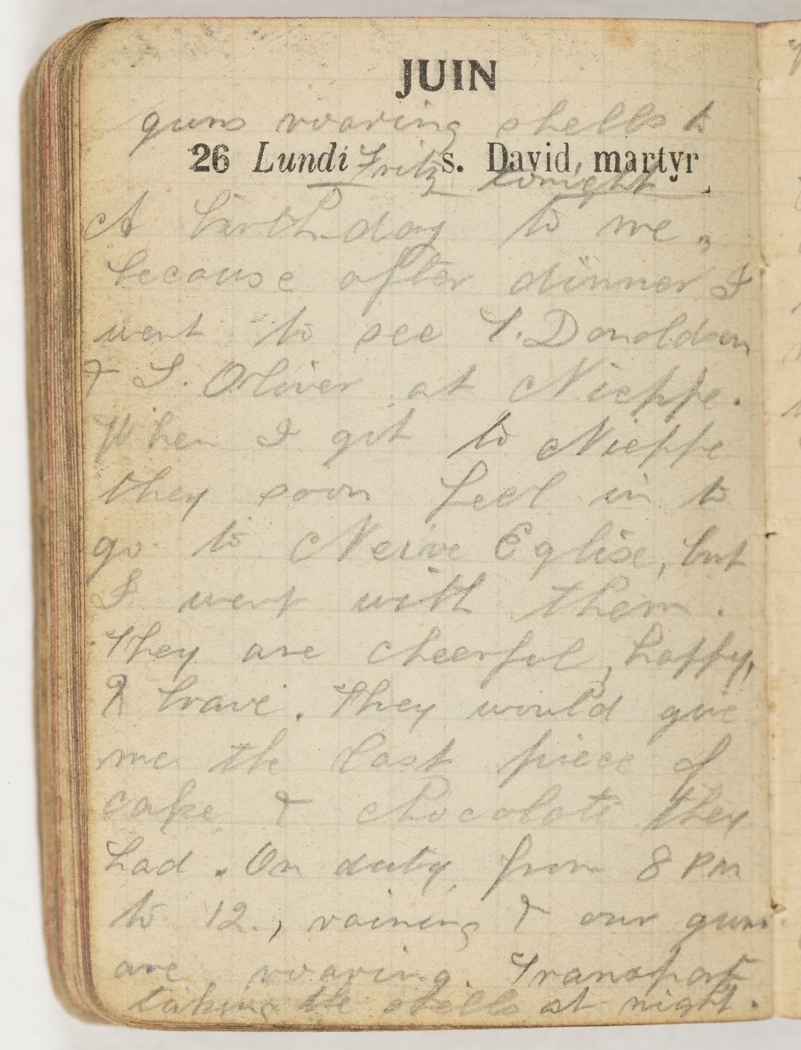 JUIN
guns roaring shells to
26 Lundi s. David, martyr
Fritz tonight
A birthday to me,
because after dinner I
went to see T. Donaldson
& S. Oliver at Nieppe.
When I got to Nieppe
they soon feel in to
go to Neive Eglise, but
I went with them.
They are cheerful, happy,
& brave. They would give
me the last piece of
cake & chocolate they
had. On duty from 8 PM
to 12., raining & our guns
are roaring. Transport
taking the shells at night.